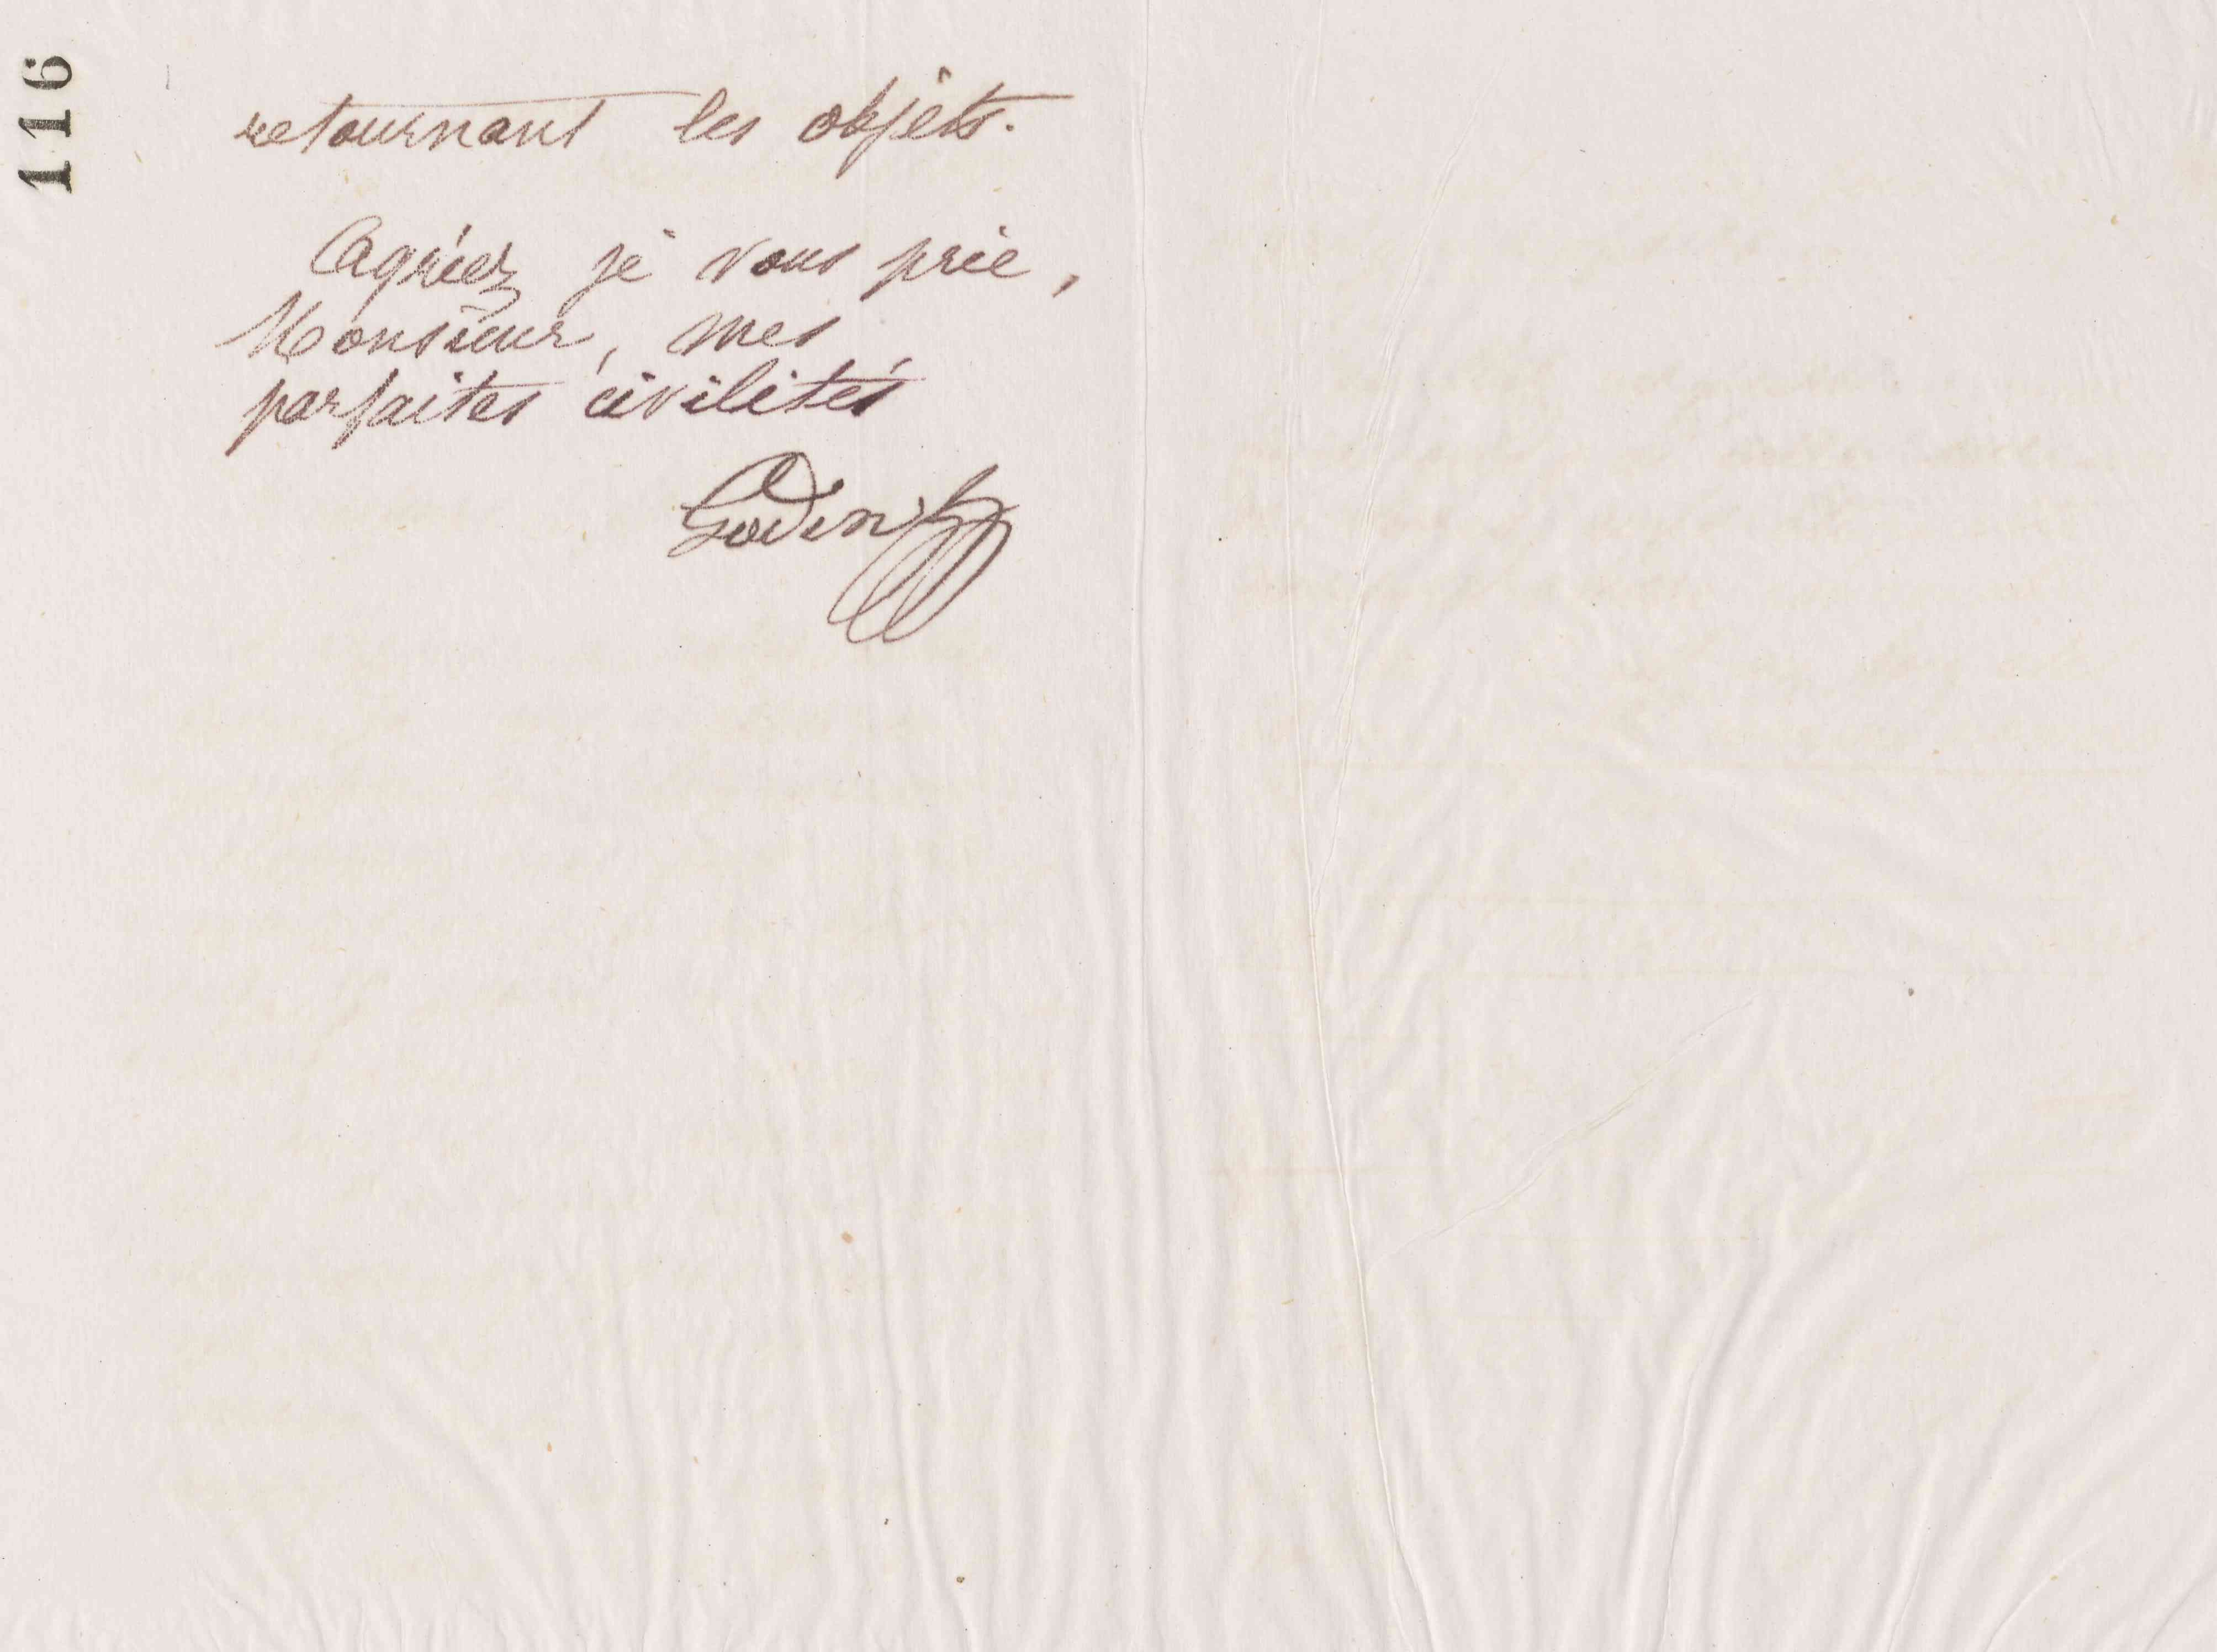 116
retournant les objets.
Agréez je vous prie,
Monsieur, mes
parfaites civilités
Godin